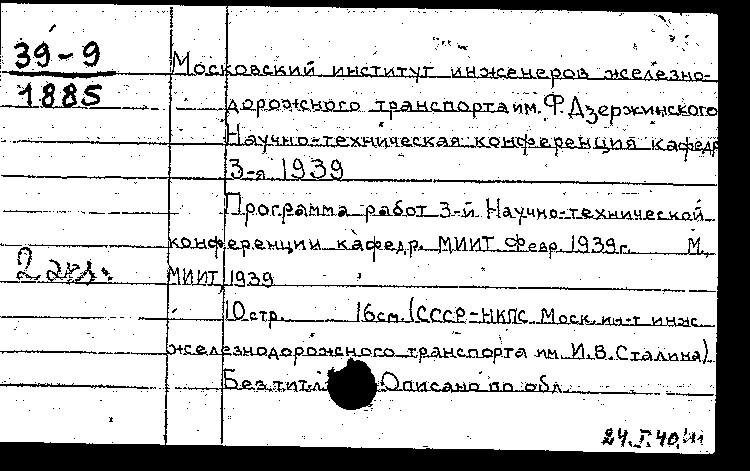 39-9
1885
Московский институт инженеров железно-
дорожного транспорта им. Ф. Дзержинского
Научно-техническая конференция кафедр
3-я 1939
Программа работ 3-й Научно-технической
конференции кафедр. МИИТ. Февр. 1939г. М.,
2 экз.
МИИТ, 1939
10 стр. 16см. (СССР-НКПС Моск. ин-т инж.
железнодорожного транспорта им. И.В. Сталина)
Без тит. л. Описано по обл.
24.I.40.